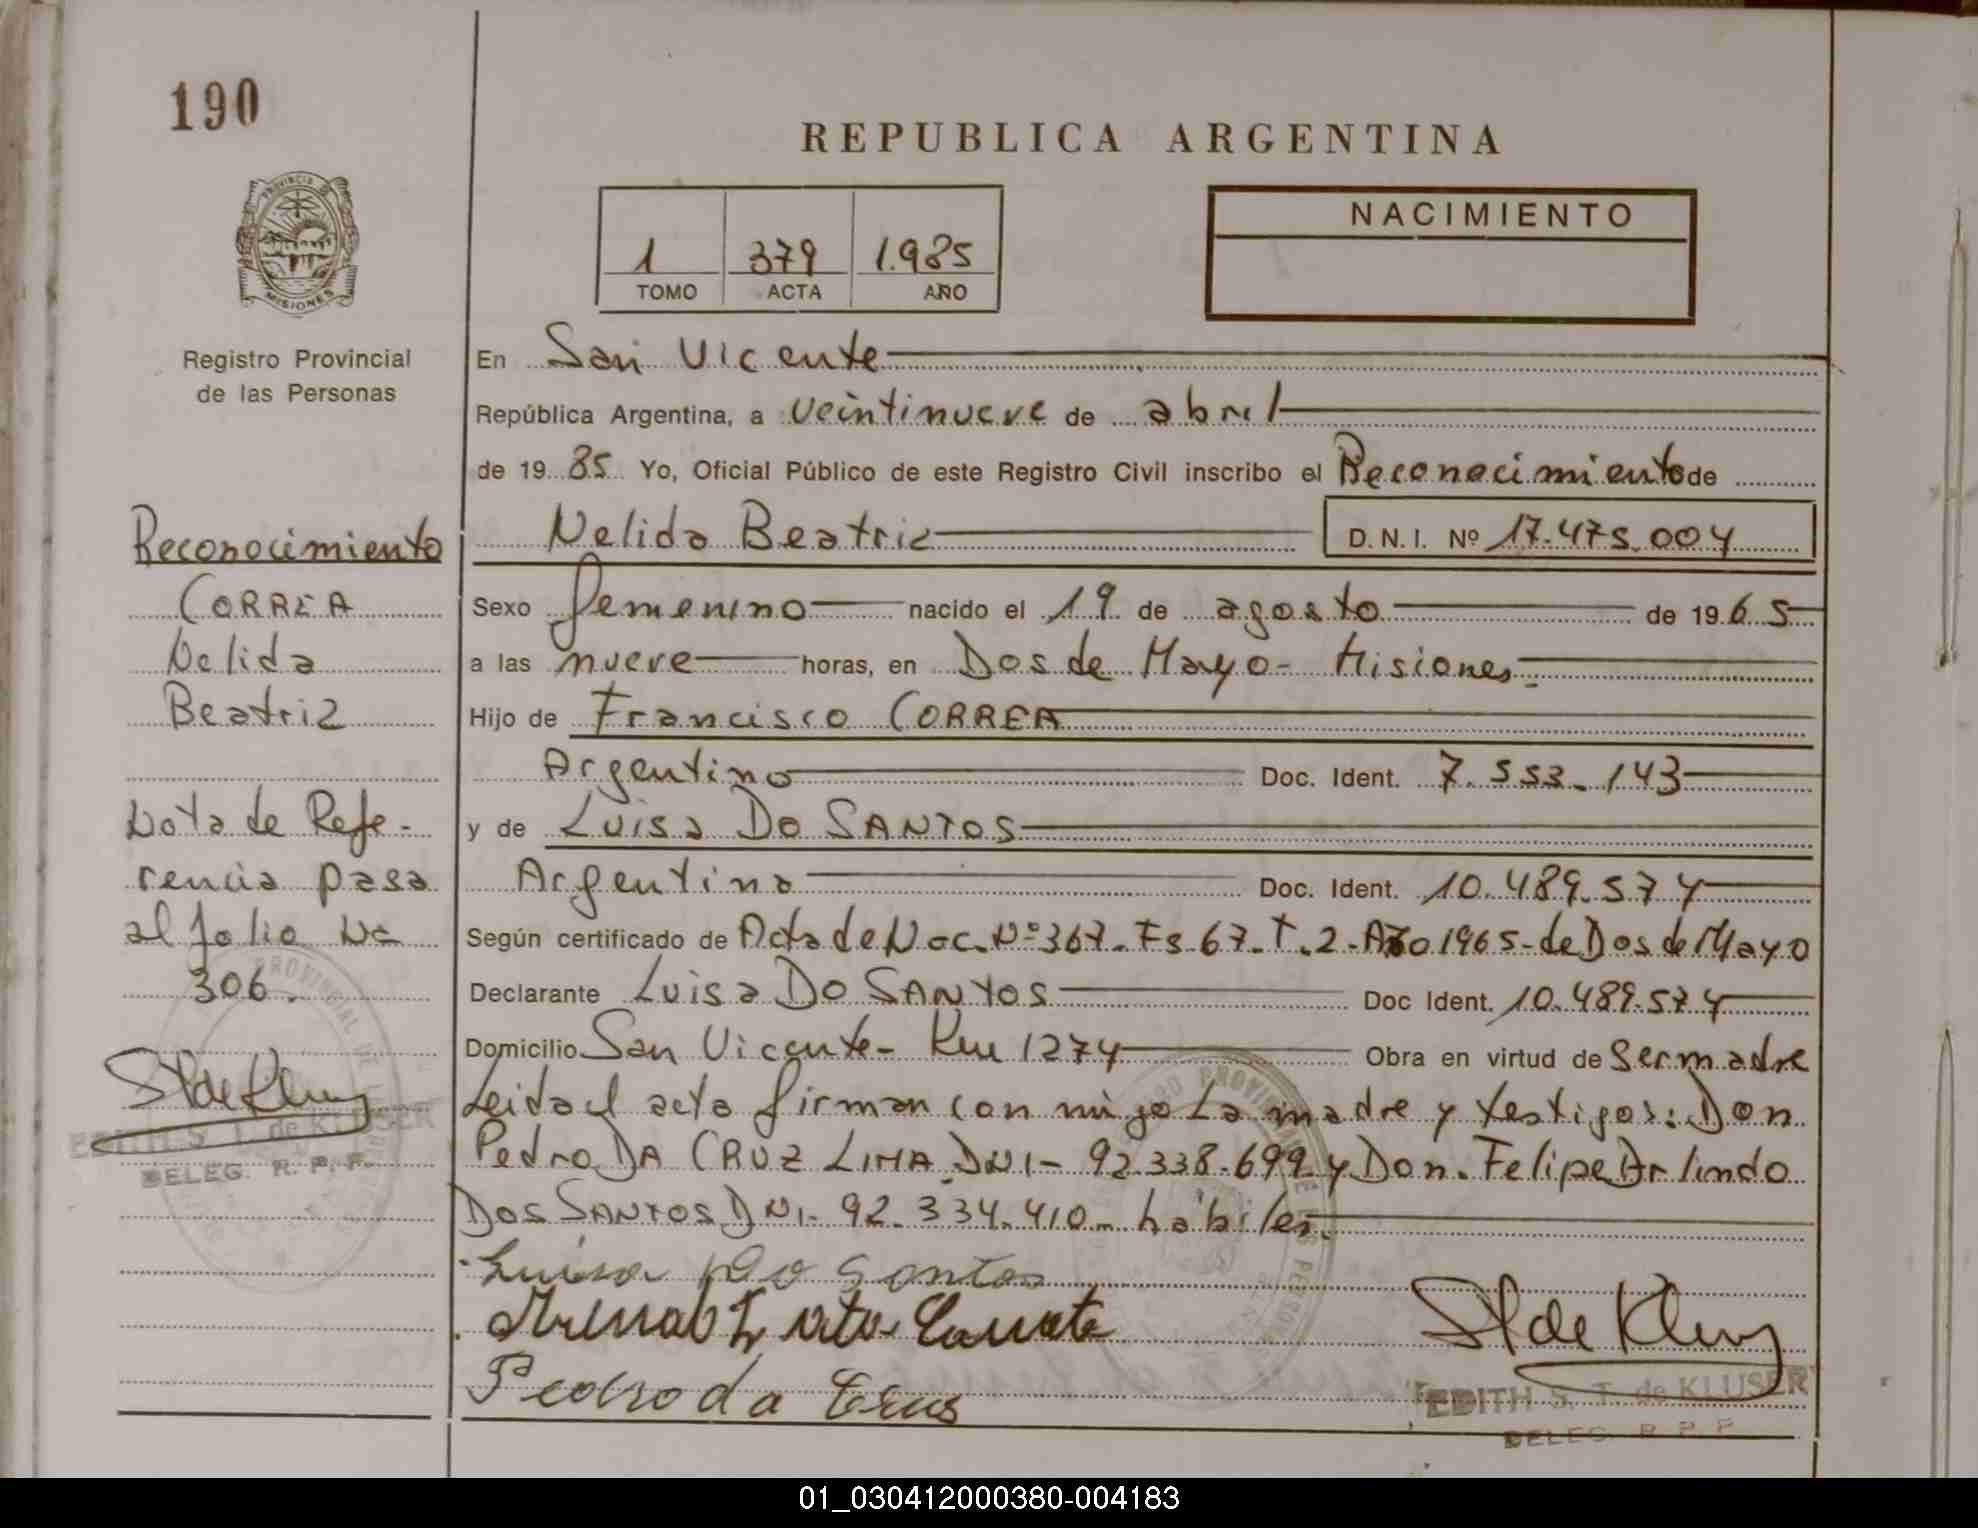 190
REPUBLICA ARGENTINA
PROVINCIA DE
MISIONES
Registro Provincial
de las Personas
1 379 1.985
TOMO ACTA AÑO
NACIMIENTO
En San Vicente
República Argentina, a veintinueve de abril
de 19 85 Yo, Oficial Público de este Registro Civil inscribo el Reconocimiento de
Nelida Beatriz D.N.I. Nº 17.475.004
Sexo femenino nacido el 19 de agosto de 1965
a las nueve horas, en Dos de Mayo - Misiones.
Hijo de Francisco CORREA
Argentino Doc. Ident. 7.553.143
y de Luisa DO SANTOS
Argentina Doc. Ident. 10.489.574
Según certificado de Acta de Nac. Nº 367. Fs 67. T. 2. Año 1965 - de Dos de Mayo
Declarante Luisa DO SANTOS Doc Ident. 10.489.574
Domicilio San Vicente - Km 1274 Obra en virtud de ser madre
Leida el acta firman con migo La madre y testigos: Don
Pedro DA CRUZ LIMA DNI - 92.338.699 y Don. Felipe Arlindo
DOS SANTOS DNI - 92.334.410 - hábiles.
Luisa Do Santos
Pedro da Crus
EDITH S. T. de KLUSER
DELEG. R. P. P.
Reconocimiento
CORREA
Nelida
Beatriz
Nota de Refe-
rencia pasa
al folio Nº
306.
EDITH S. T. de KLUSER
DELEG. R. P. P.
01_030412000380-004183